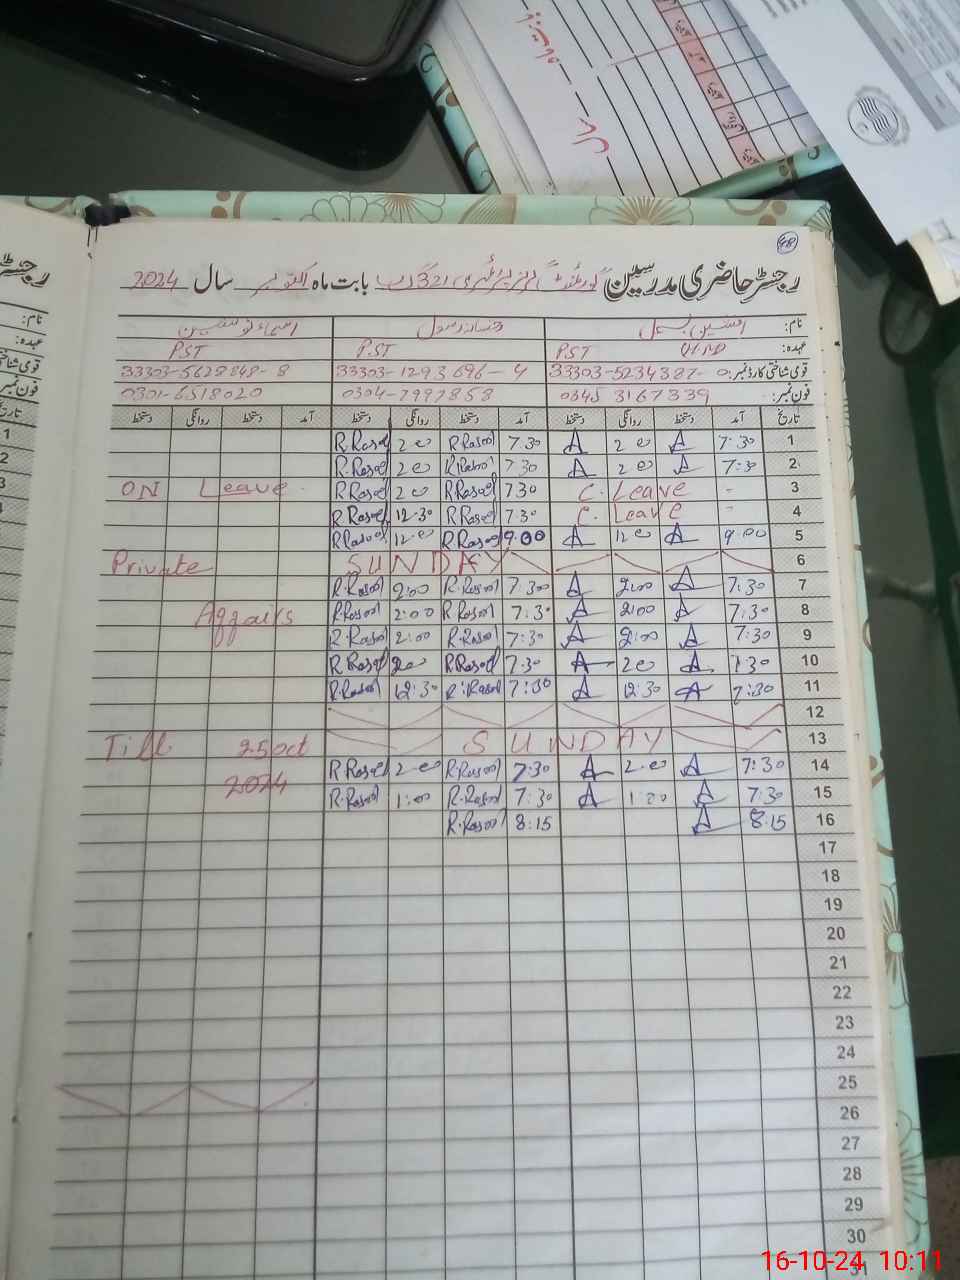 48
رجسٹر حاضری مدرسین گورنمنٹ گرلز پرائمری 321 گ ب بابت ماہ اکتوبر سال 2024
نام: افشین بسمل
عہدہ: PST PST PST
قومی شناختی کارڈ نمبر: 33303-5234387-0 33303-1293696-4 33303-5628848-8
فون نمبر: 0345 3167339 0304-7997858 0301-6518020
تاریخ آمد دستخط روانگی دستخط آمد دستخط روانگی دستخط آمد دستخط روانگی دستخط
1 7:30 A 2:00 A 7:30 R.Rasool 2:00 R.Rasool
2 7:30 A 2:00 A 7:30 R.Rasool 2:00 R.Rasool
3 - C. Leave 7:30 R.Rasool 2:00 R.Rasool ON Leave
4 - C. Leave 7:30 R.Rasool 12:30 R.Rasool
5 9:00 A 12:00 A 9:00 R.Rasool 12:00 R.Rasool
6 SUNDAY Private
7 7:30 A 2:00 A 7:30 R.Rasool 2:00 R.Rasool
8 7:30 A 2:00 A 7:30 R.Rasool 2:00 R.Rasool Affairs
9 7:30 A 2:00 A 7:30 R.Rasool 2:00 R.Rasool
10 7:30 A 2:00 A 7:30 R.Rasool 2:00 R.Rasool
11 7:30 A 12:30 A 7:30 R.Rasool 12:30 R.Rasool
12
13 SUNDAY Till 25 Oct
14 7:30 A 2:00 A 7:30 R.Rasool 2:00 R.Rasool 2024
15 7:30 A 1:00 A 7:30 R.Rasool 1:00 R.Rasool
16 8:15 A 8:15 R.Rasool
17
18
19
20
21
22
23
24
25
26
27
28
29
30
31
16-10-24 10:11